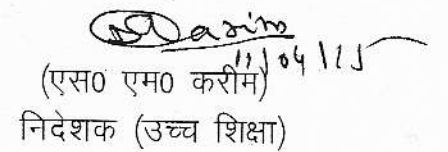 11/04/15
(एस0 एम0 करीम)
निदेशक (उच्च शिक्षा)